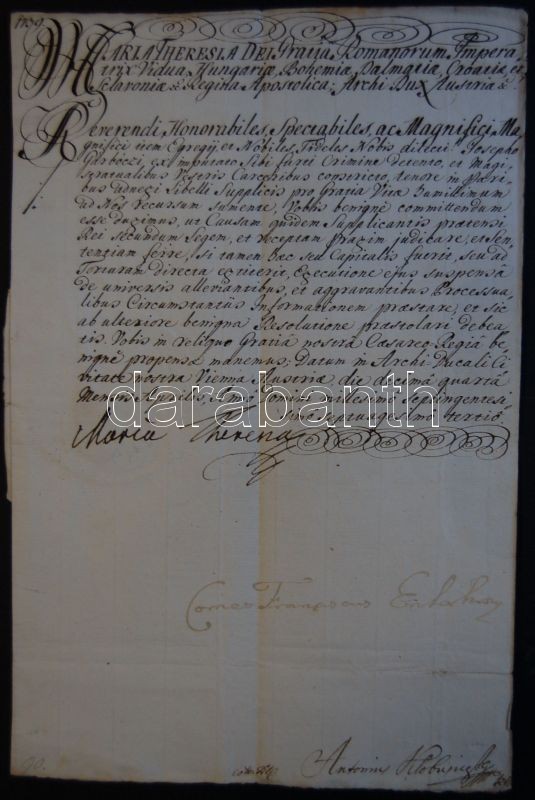 MARIA THERESIA DEI Gratiâ Romanorum Impera
trix Vidua, Hungariæ, Bohemiæ, Dalmatiæ, Croatiæ, et
Sclavoniæ &c Regina Apostolica; Archi Dux Austriæ &c
Reverendi, Honorabiles, Spectabiles, ac Magnifici, Ma
gnifici item Egregii, et Nobiles, Fideles Nobis dilecti. Josepho
ex imputato Sibi furti Crimine detento, et Magi
stratualibus Vestris Carceribus constricto, tenore in Parti
bus adnexi Libelli Supplicis pro Gratia Vitæ humillimum
ad Nos recursum sumente, Vobis benigne committendum
esse duximus, ut Causam quidem Supplicantis prætensi
Rei secundum Legem, et receptam Praxim judicare, et Sen
tentiam ferre, si tamen hæc seu Capitalis fuerit, seu ad
Torturam directa extiterit, Executione ejus suspensâ
de universis alleviantibus, et aggravantibus Processua
libus Circumstantiis Informationem præstare, et sic
ab ulteriore benigna Resolutione præstolari debea
tis. Vobis in reliquo Gratiâ nostrâ Cæsareo-Regiâ be
nigne propensæ manemus; Datum in Archi Ducali Ci
vitate nostra Vienna Austriæ, die decima quartâ
Mensis Aprilis, Anno Domini Millesimo Septingentesi
mo Septuagesimo tertio.
darabanth
Maria Theresia
Comes Franciscus
Antonius